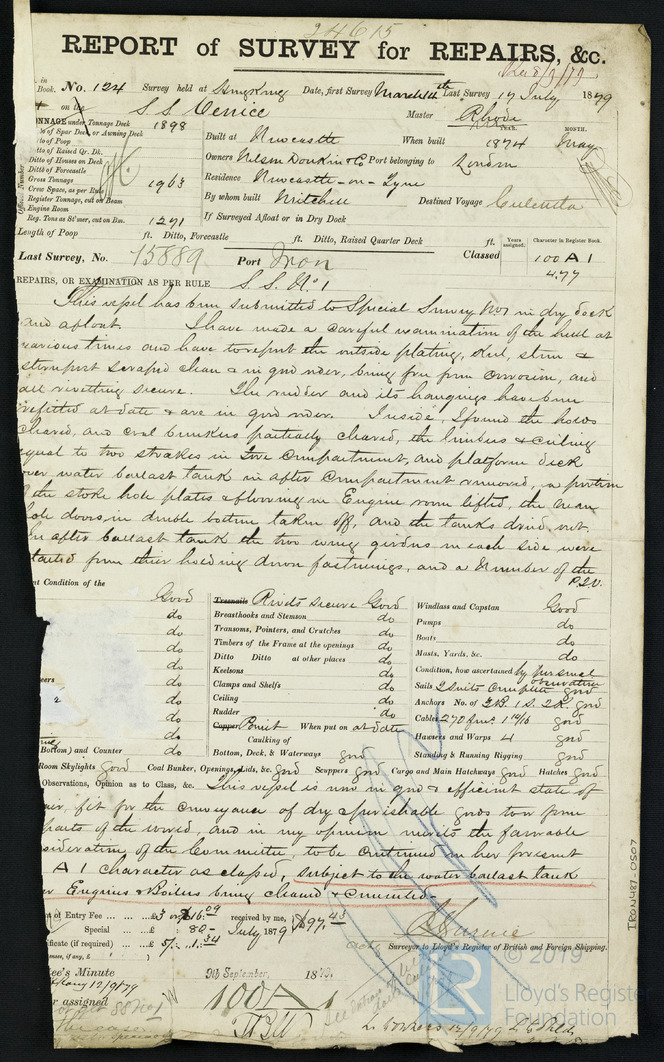 24615
REPORT of SURVEY for REPAIRS, &c.
in Book. No. 124 Survey held at Date, first Survey March 11th Last Survey 17 July 1879
on the S.S. Venice Master Rhode
TONNAGE under Tonnage Deck 1898
of Spar Deck, or Awning Deck
of Poop
Ditto of Raised Qr. Dk.
Ditto of Houses on Deck
Ditto of Forecastle
Gross Tonnage 1963
Crew Space, as per Rule
Register Tonnage, cut on Beam
Engine Room
Reg. Tons as St'mer, cut on Bm. 1271
Official Number
Built at Newcastle When built YEAR. 1874 MONTH. May
Owners Nelson Donkin & Co Port belonging to London
Residence Newcastle-on-Tyne
By whom built Mitchell Destined Voyage Calcutta
If Surveyed Afloat or in Dry Dock
Length of Poop ft. Ditto, Forecastle ft. Ditto, Raised Quarter Deck ft.
Years assigned. Character in Register Book.
Last Survey, No. 15889 Port Iron Classed 100 A 1
4.77
REPAIRS, OR EXAMINATION AS PER RULE S.S. No 1
This vessel has been submitted to Special Survey No 1 in dry dock
and afloat. I have made a careful examination of the hull at
various times and have to report the outside plating, keel, stem &
sternpost scraped clean & in good order, being free from corrosion, and
all rivetting secure. The rudder and its hangings have been
refitted at date & are in good order. Inside, I found the holds
cleared, and coal bunkers partially cleared, the limbers & ceiling
equal to two strakes in fore compartment, and platform deck
over water ballast tank in after compartment removed, a portion
of the stoke hole plates & flooring in Engine room lifted, the man
hole doors in double bottom taken off, and the tanks dried out.
In after ballast tank the two wing girders in each side were
started from their holding down fastnings, and a number of the
P.T.O.
nt Condition of the
Good
do
do
do
do
do
do
do
Treenails Rivets secure Good
Breasthooks and Stemson do
Transoms, Pointers, and Crutches do
Timbers of the Frame at the openings do
Ditto Ditto at other places do
Keelsons do
Clamps and Shelfs do
Ceiling do
Rudder do
Copper Paint When put on at date
Caulking of
Bottom, Deck, & Waterways good
Windlass and Capstan Good
Pumps do
Boats do
Masts, Yards, &c. do
Condition, how ascertained by personal observation
Sails 2 suits complete good
Anchors No. of 2B 1S. 2K. good
Cables 270 fms. 1 11/16 good
Hawsers and Warps 4 good
Standing & Running Rigging good
Bottom) and Counter do
Room Skylights good Coal Bunker, Openings, Lids, &c. good Scuppers good Cargo and Main Hatchways good Hatches good
Observations, Opinion as to Class, &c. This vessel is now in good & efficient state of
air, fit for the conveyance of dry & perishable goods to & from
parts of the world, and in my opinion merits the favorable
sideration of the Committee, to be continued in her present
A 1 character as classed, subject to the water ballast tank
Engines & Boilers being cleaned & cemented-
of Entry Fee £3 or $16.09 received by me,
Special £ 80 – July 1879 $97.43
ficate (if required) £ 5/- 1.34
Surveyor to Lloyd's Register of British and Foreign Shipping.
tee's Minute 9th September, 1879.
assigned 100 A 1
12/9/79
IRON487-0507
© 2019
LR
Lloyd's Register
Foundation